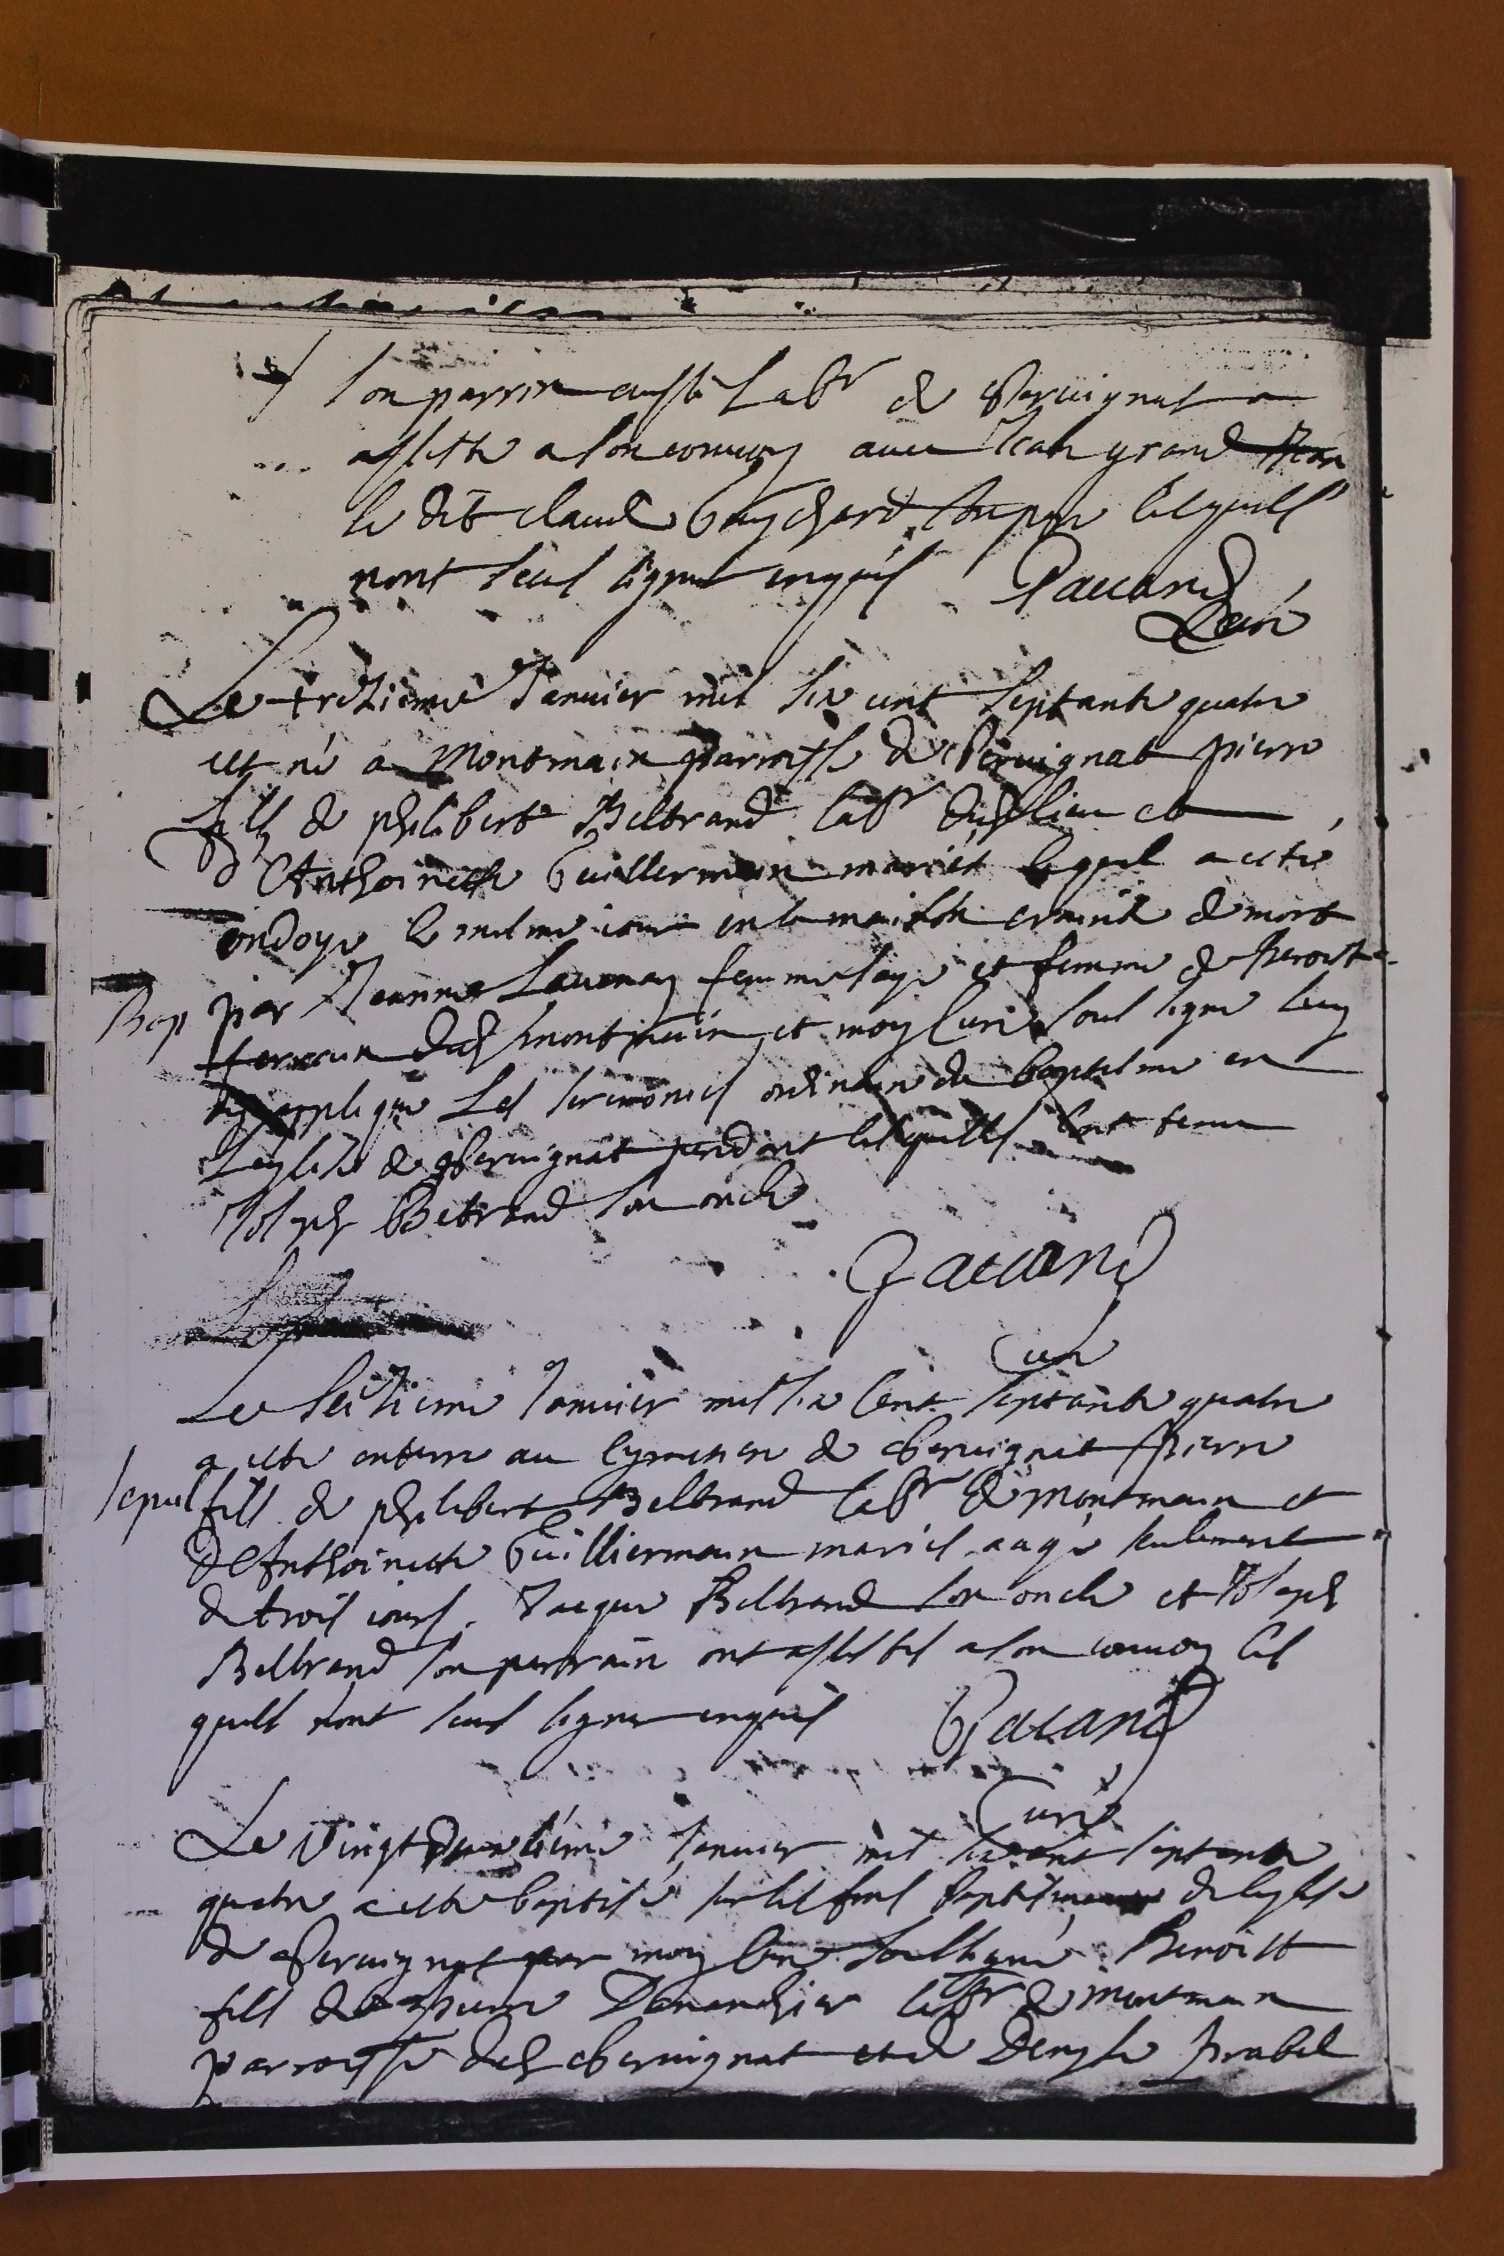 son parrin aussi labr de Peruignat a
assiste a son convoy avec Jean grand
le dit claude Guychard son pere lesquels
nont sceu signer enquis Paccand
Curé
Le trezieme Januier mil six cent septante quatre
est né a Montmain parroisse de Peruignat pierre
fils de philibert Beltrand labr dud lieu et
d'Anthoinette Guillermain mariés lequel a esté
ondoye le mesme jour en la maison crainte de mort
Bap par Jeanne Lauenay femme sage et femme de Benoist
dud montmain, et moy Curé soub signe luy
ay applique Les ceremonies ordinaire du baptesme en
Leglise de Peruignat pendant lesquelles l'ont tenu
Joseph Beltrand son oncle
Paccand
Curé
Le seizieme Januier mil six cent septante quatre
a este enterre au cymetiere de Peruignat pierre
sepul fils de philibert Beltrand labr de Montmain et
d'Anthoinette Guilliermain mariés aagé seulement
de trois iours. Jacque Beltrand son oncle et Joseph
Beltrand son parrain ont assistés a son convoy les
quels nont sceu signer enquis Pacand
Curé
Le Vingt deuxiéme Januier mil six cent septante
quatre a este baptisé sur les fons baptismaux de leglise
de Peruignat par moy Curé soubsigné Benoist
fils de pierre Demandier labr de Montmain
parroisse dud Peruignat et de Denyse